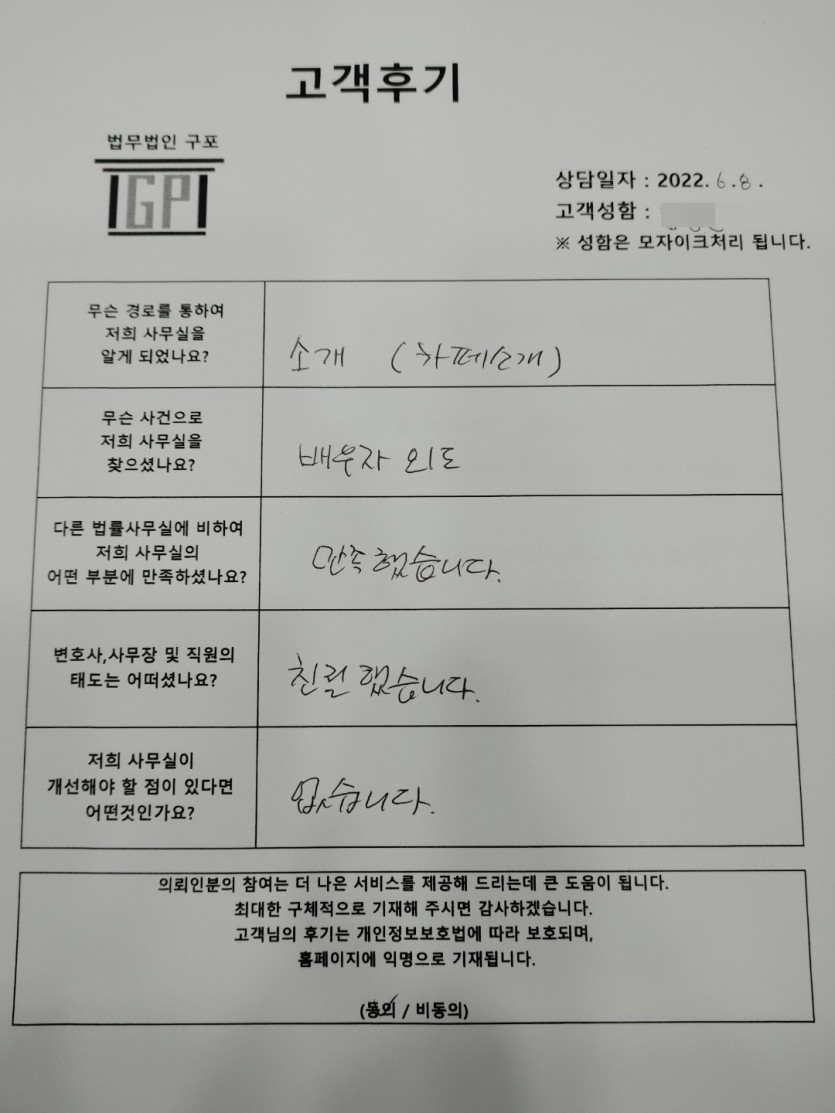 고객후기
법무법인 구포
GP
상담일자 : 2022. 6. 8.
고객성함 :
※ 성함은 모자이크처리 됩니다.
무슨 경로를 통하여
저희 사무실을
알게 되었나요?
소개 (카페소개)
무슨 사건으로
저희 사무실을
찾으셨나요?
배우자 외도
다른 법률사무실에 비하여
저희 사무실의
어떤 부분에 만족하셨나요?
만족했습니다.
변호사,사무장 및 직원의
태도는 어떠셨나요?
친절했습니다.
저희 사무실이
개선해야 할 점이 있다면
어떤것인가요?
없습니다.
의뢰인분의 참여는 더 나은 서비스를 제공해 드리는데 큰 도움이 됩니다.
최대한 구체적으로 기재해 주시면 감사하겠습니다.
고객님의 후기는 개인정보보호법에 따라 보호되며,
홈페이지에 익명으로 기재됩니다.
(동의 / 비동의)